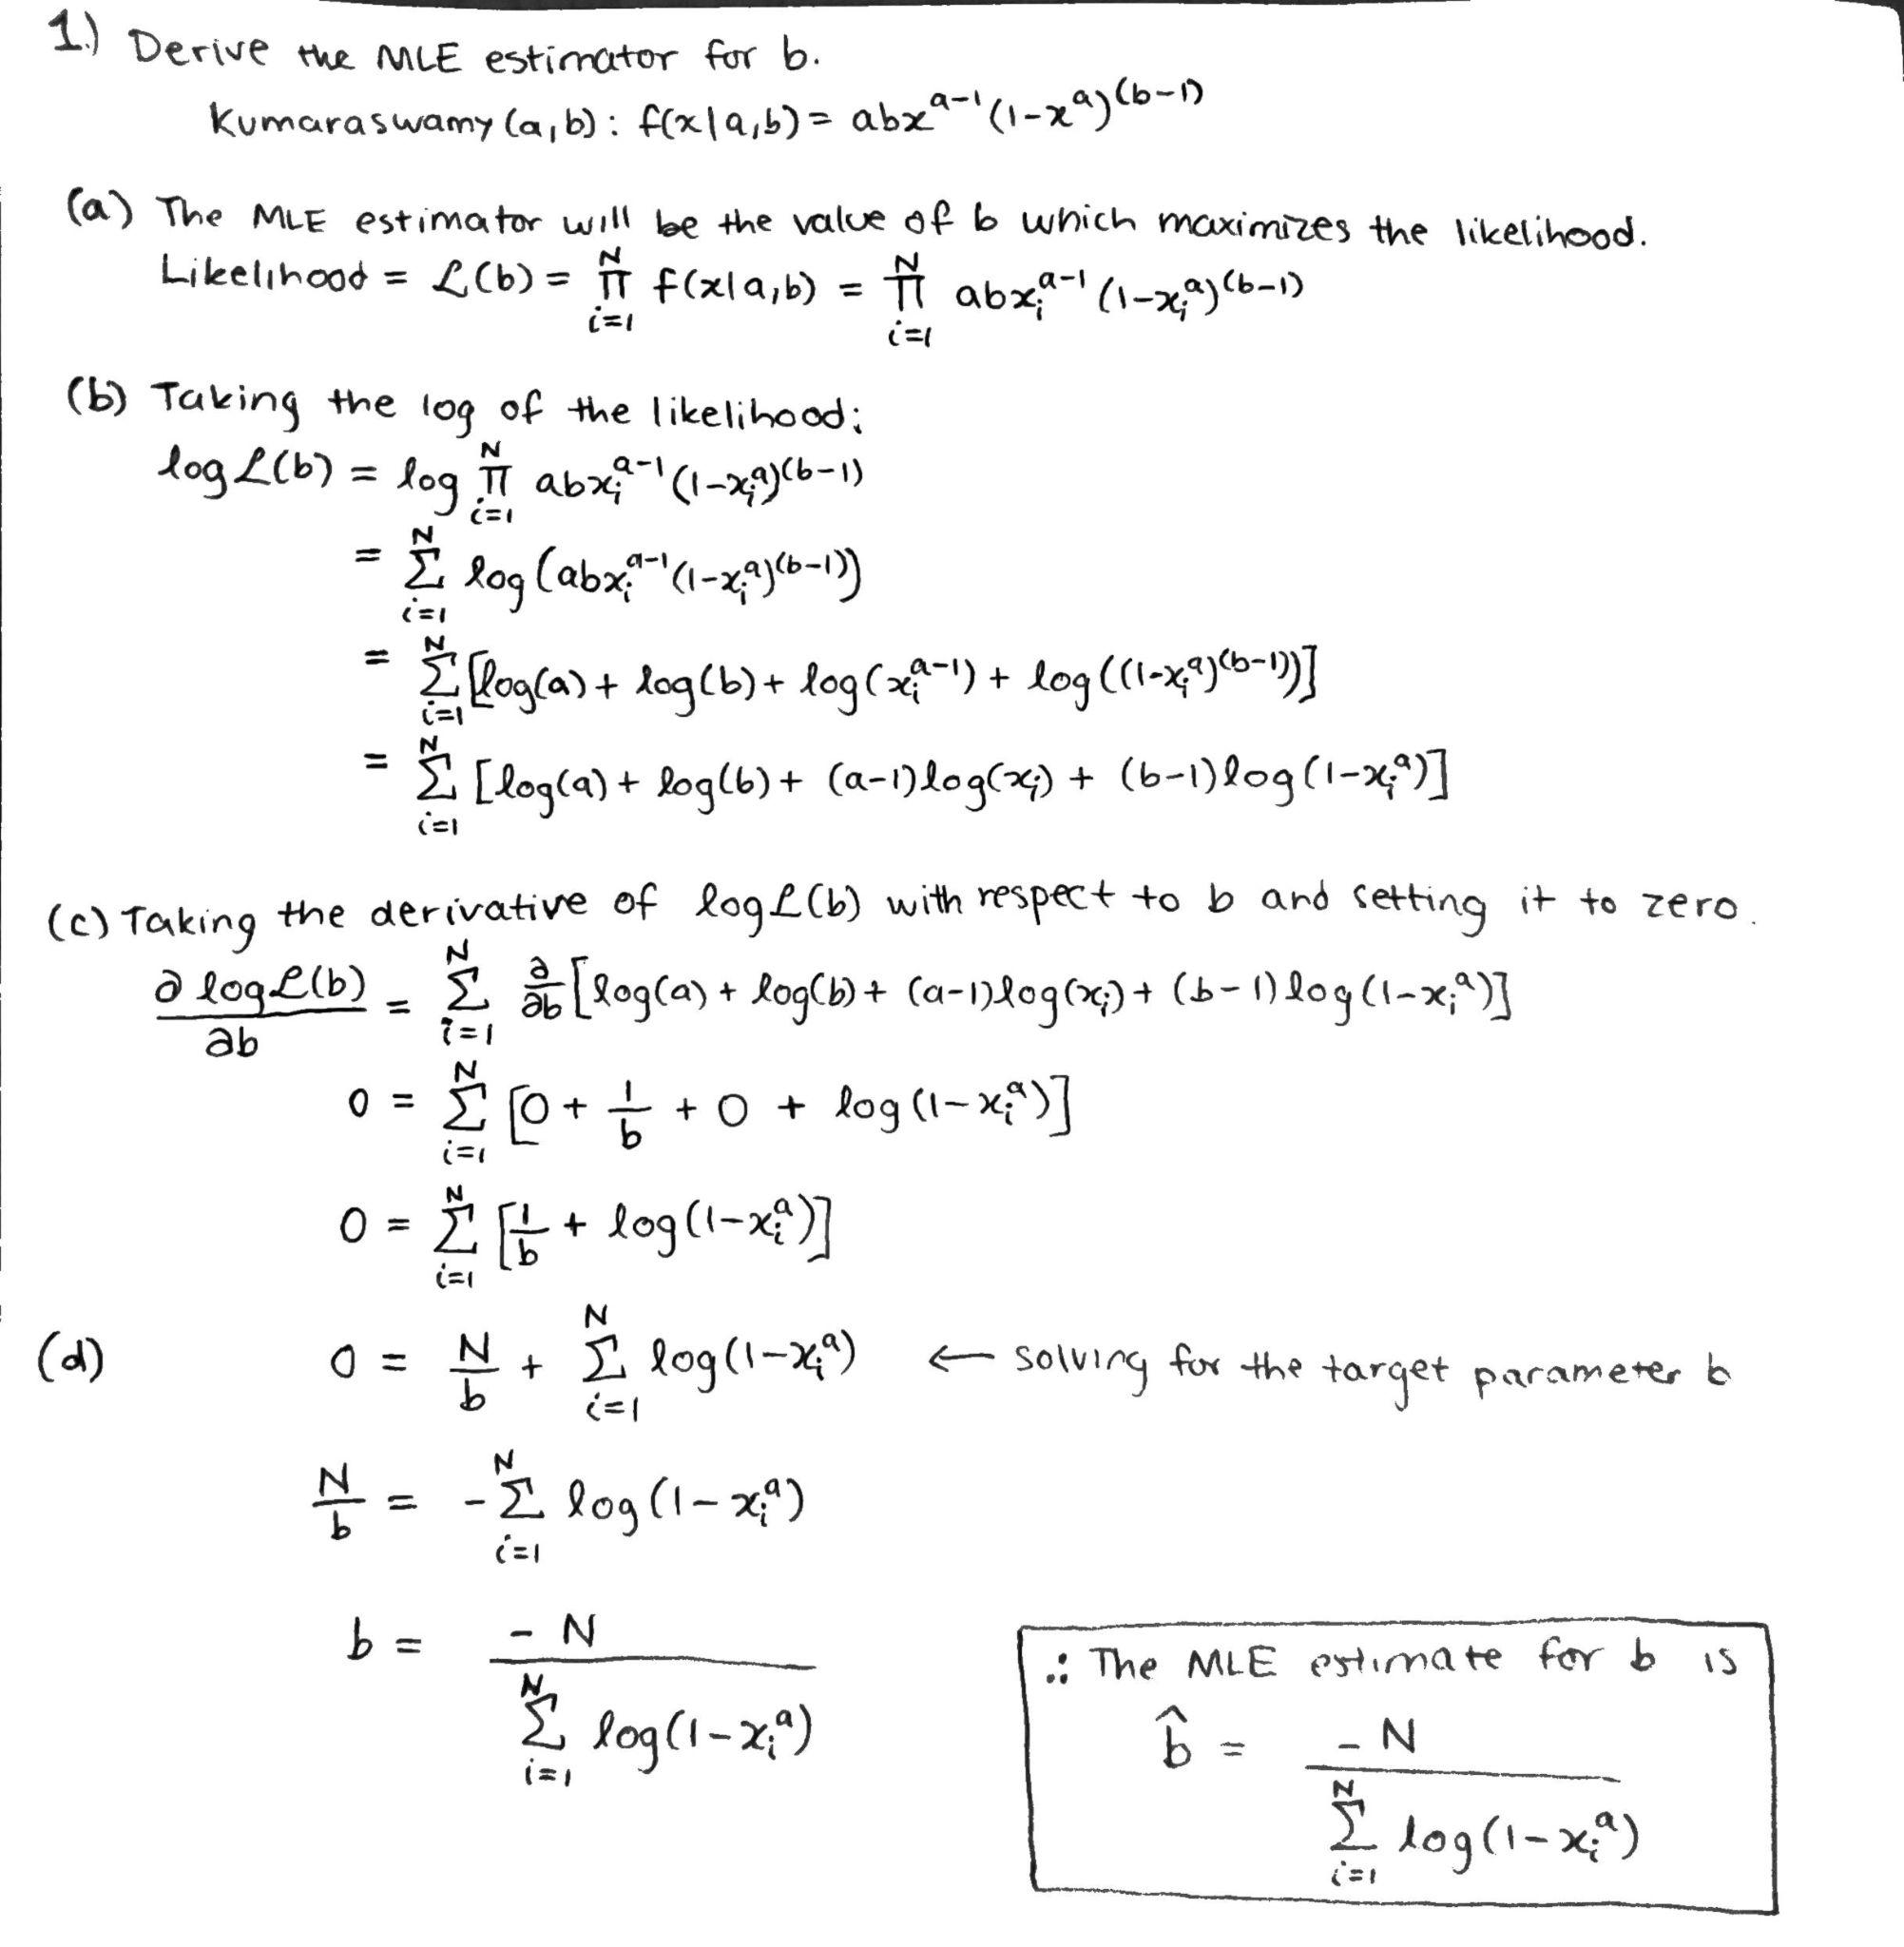 1.) Derive the MLE estimator for b.
Kumaraswamy (a,b): f(x|a,b) = abx^{a-1}(1-x^a)^{(b-1)}
(a) The MLE estimator will be the value of b which maximizes the likelihood.
Likelihood = ℒ(b) = ∏_{i=1}^{N} f(x|a,b) = ∏_{i=1}^{N} abx_i^{a-1}(1-x_i^a)^{(b-1)}
(b) Taking the log of the likelihood:
log ℒ(b) = log ∏_{i=1}^{N} abx_i^{a-1}(1-x_i^a)^{(b-1)}
= ∑_{i=1}^{N} log(abx_i^{a-1}(1-x_i^a)^{(b-1)})
= ∑_{i=1}^{N} [log(a) + log(b) + log(x_i^{a-1}) + log((1-x_i^a)^{(b-1)})]
= ∑_{i=1}^{N} [log(a) + log(b) + (a-1)log(x_i) + (b-1)log(1-x_i^a)]
(c) Taking the derivative of log ℒ(b) with respect to b and setting it to zero.
∂ log ℒ(b)/∂b = ∑_{i=1}^{N} ∂/∂b [log(a) + log(b) + (a-1)log(x_i) + (b-1)log(1-x_i^a)]
0 = ∑_{i=1}^{N} [0 + 1/b + 0 + log(1-x_i^a)]
0 = ∑_{i=1}^{N} [1/b + log(1-x_i^a)]
(d) 0 = N/b + ∑_{i=1}^{N} log(1-x_i^a) ← solving for the target parameter b
N/b = -∑_{i=1}^{N} log(1-x_i^a)
b = -N / ∑_{i=1}^{N} log(1-x_i^a)
∴ The MLE estimate for b is
b̂ = -N / ∑_{i=1}^{N} log(1-x_i^a)